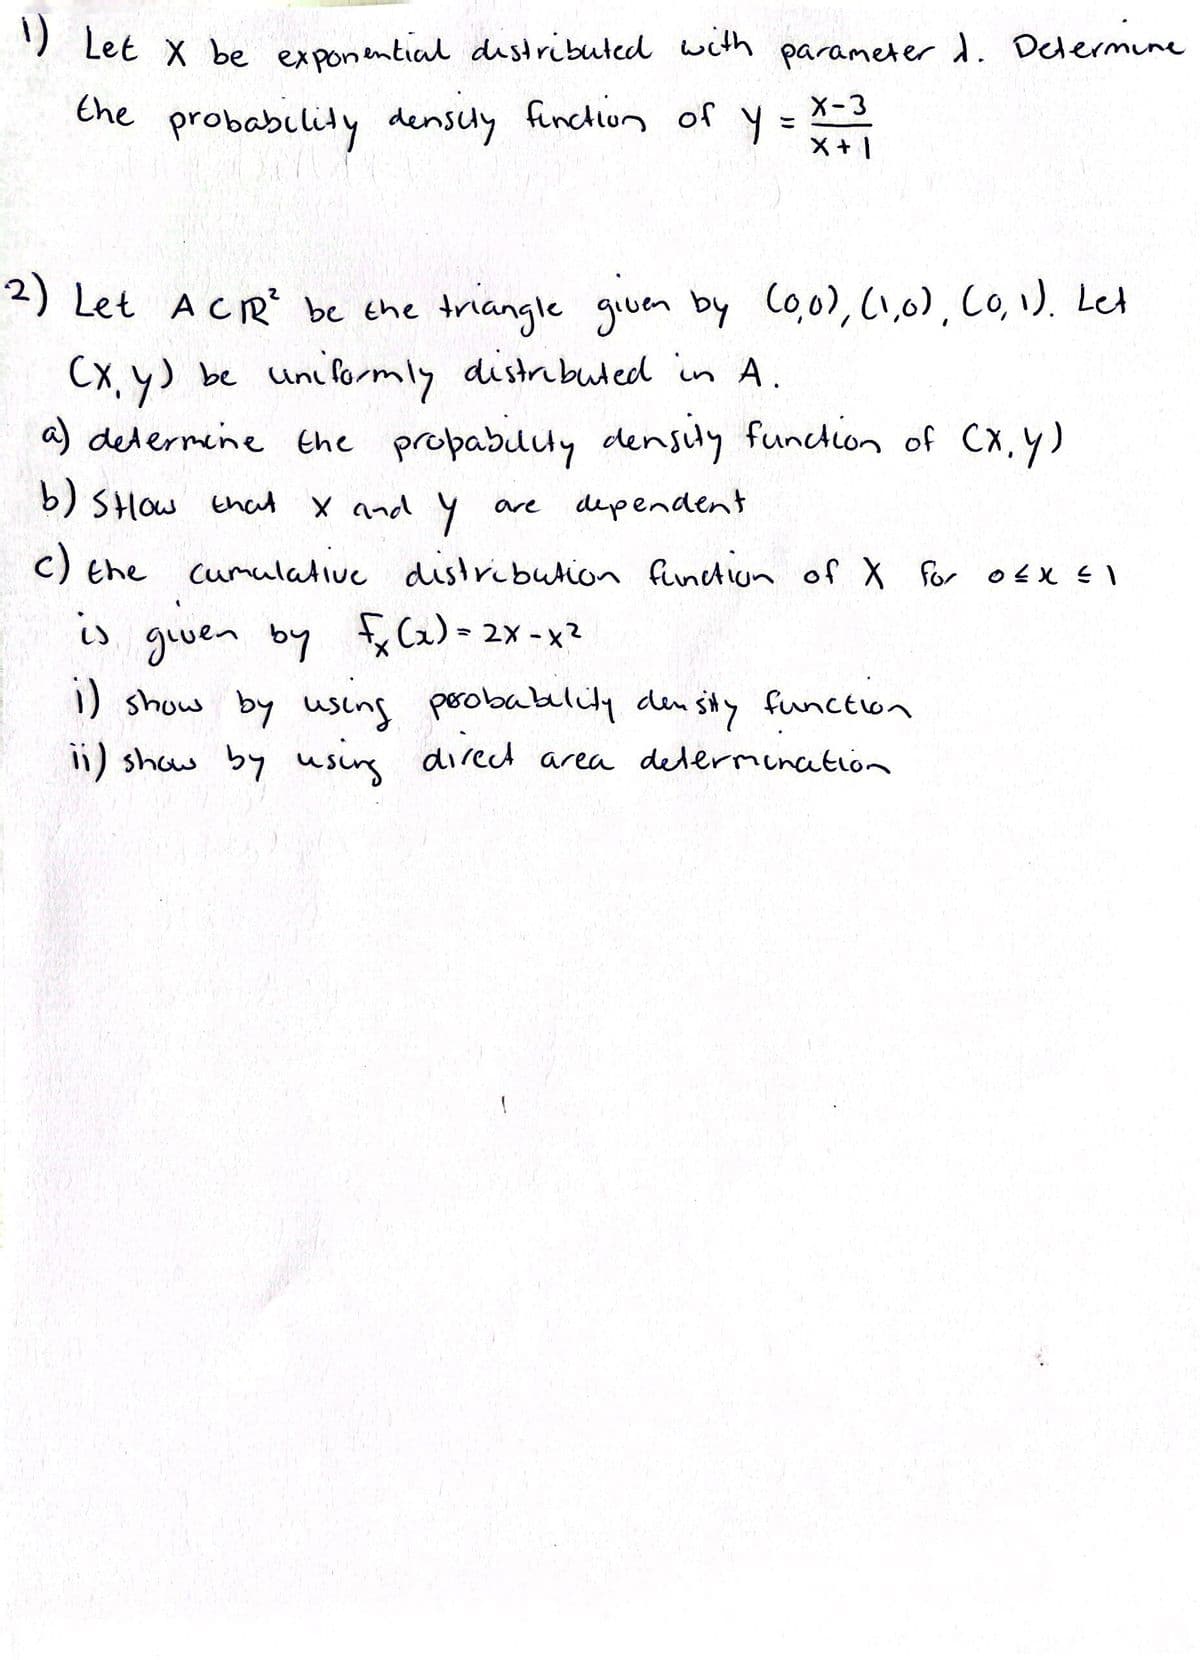 1) Let X be exponential distributed with parameter λ. Determine
the probability density function of y = X-3 / X+1
2) Let A ⊂ ℝ² be the triangle given by (0,0), (1,0), (0,1). Let
(X,Y) be uniformly distributed in A.
a) determine the probability density function of (X,Y)
b) SHow that X and Y are dependent
c) the cumulative distribution function of X for 0≤x≤1
is given by Fx(x) = 2x-x²
i) show by using probability density function
ii) show by using direct area determination